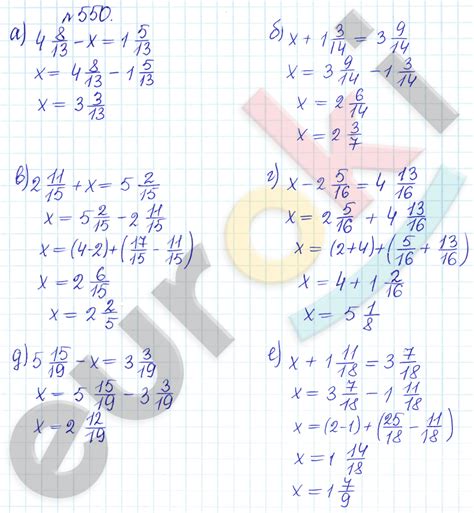 №550.
а) 4 8/13 - x = 1 5/13
x = 4 8/13 - 1 5/13
x = 3 3/13
б) x + 1 3/14 = 3 9/14
x = 3 9/14 - 1 3/14
x = 2 6/14
x = 2 3/7
в) 2 11/15 + x = 5 2/15
x = 5 2/15 - 2 11/15
x = (4-2) + (17/15 - 11/15)
x = 2 6/15
x = 2 2/5
г) x - 2 5/16 = 4 13/16
x = 2 5/16 + 4 13/16
x = (2+4) + (5/16 + 13/16)
x = 4 + 1 2/16
x = 5 1/8
д) 5 15/19 - x = 3 3/19
x = 5 15/19 - 3 3/19
x = 2 12/19
е) x + 1 11/18 = 3 7/18
x = 3 7/18 - 1 11/18
x = (2-1) + (25/18 - 11/18)
x = 1 14/18
x = 1 7/9
euroki